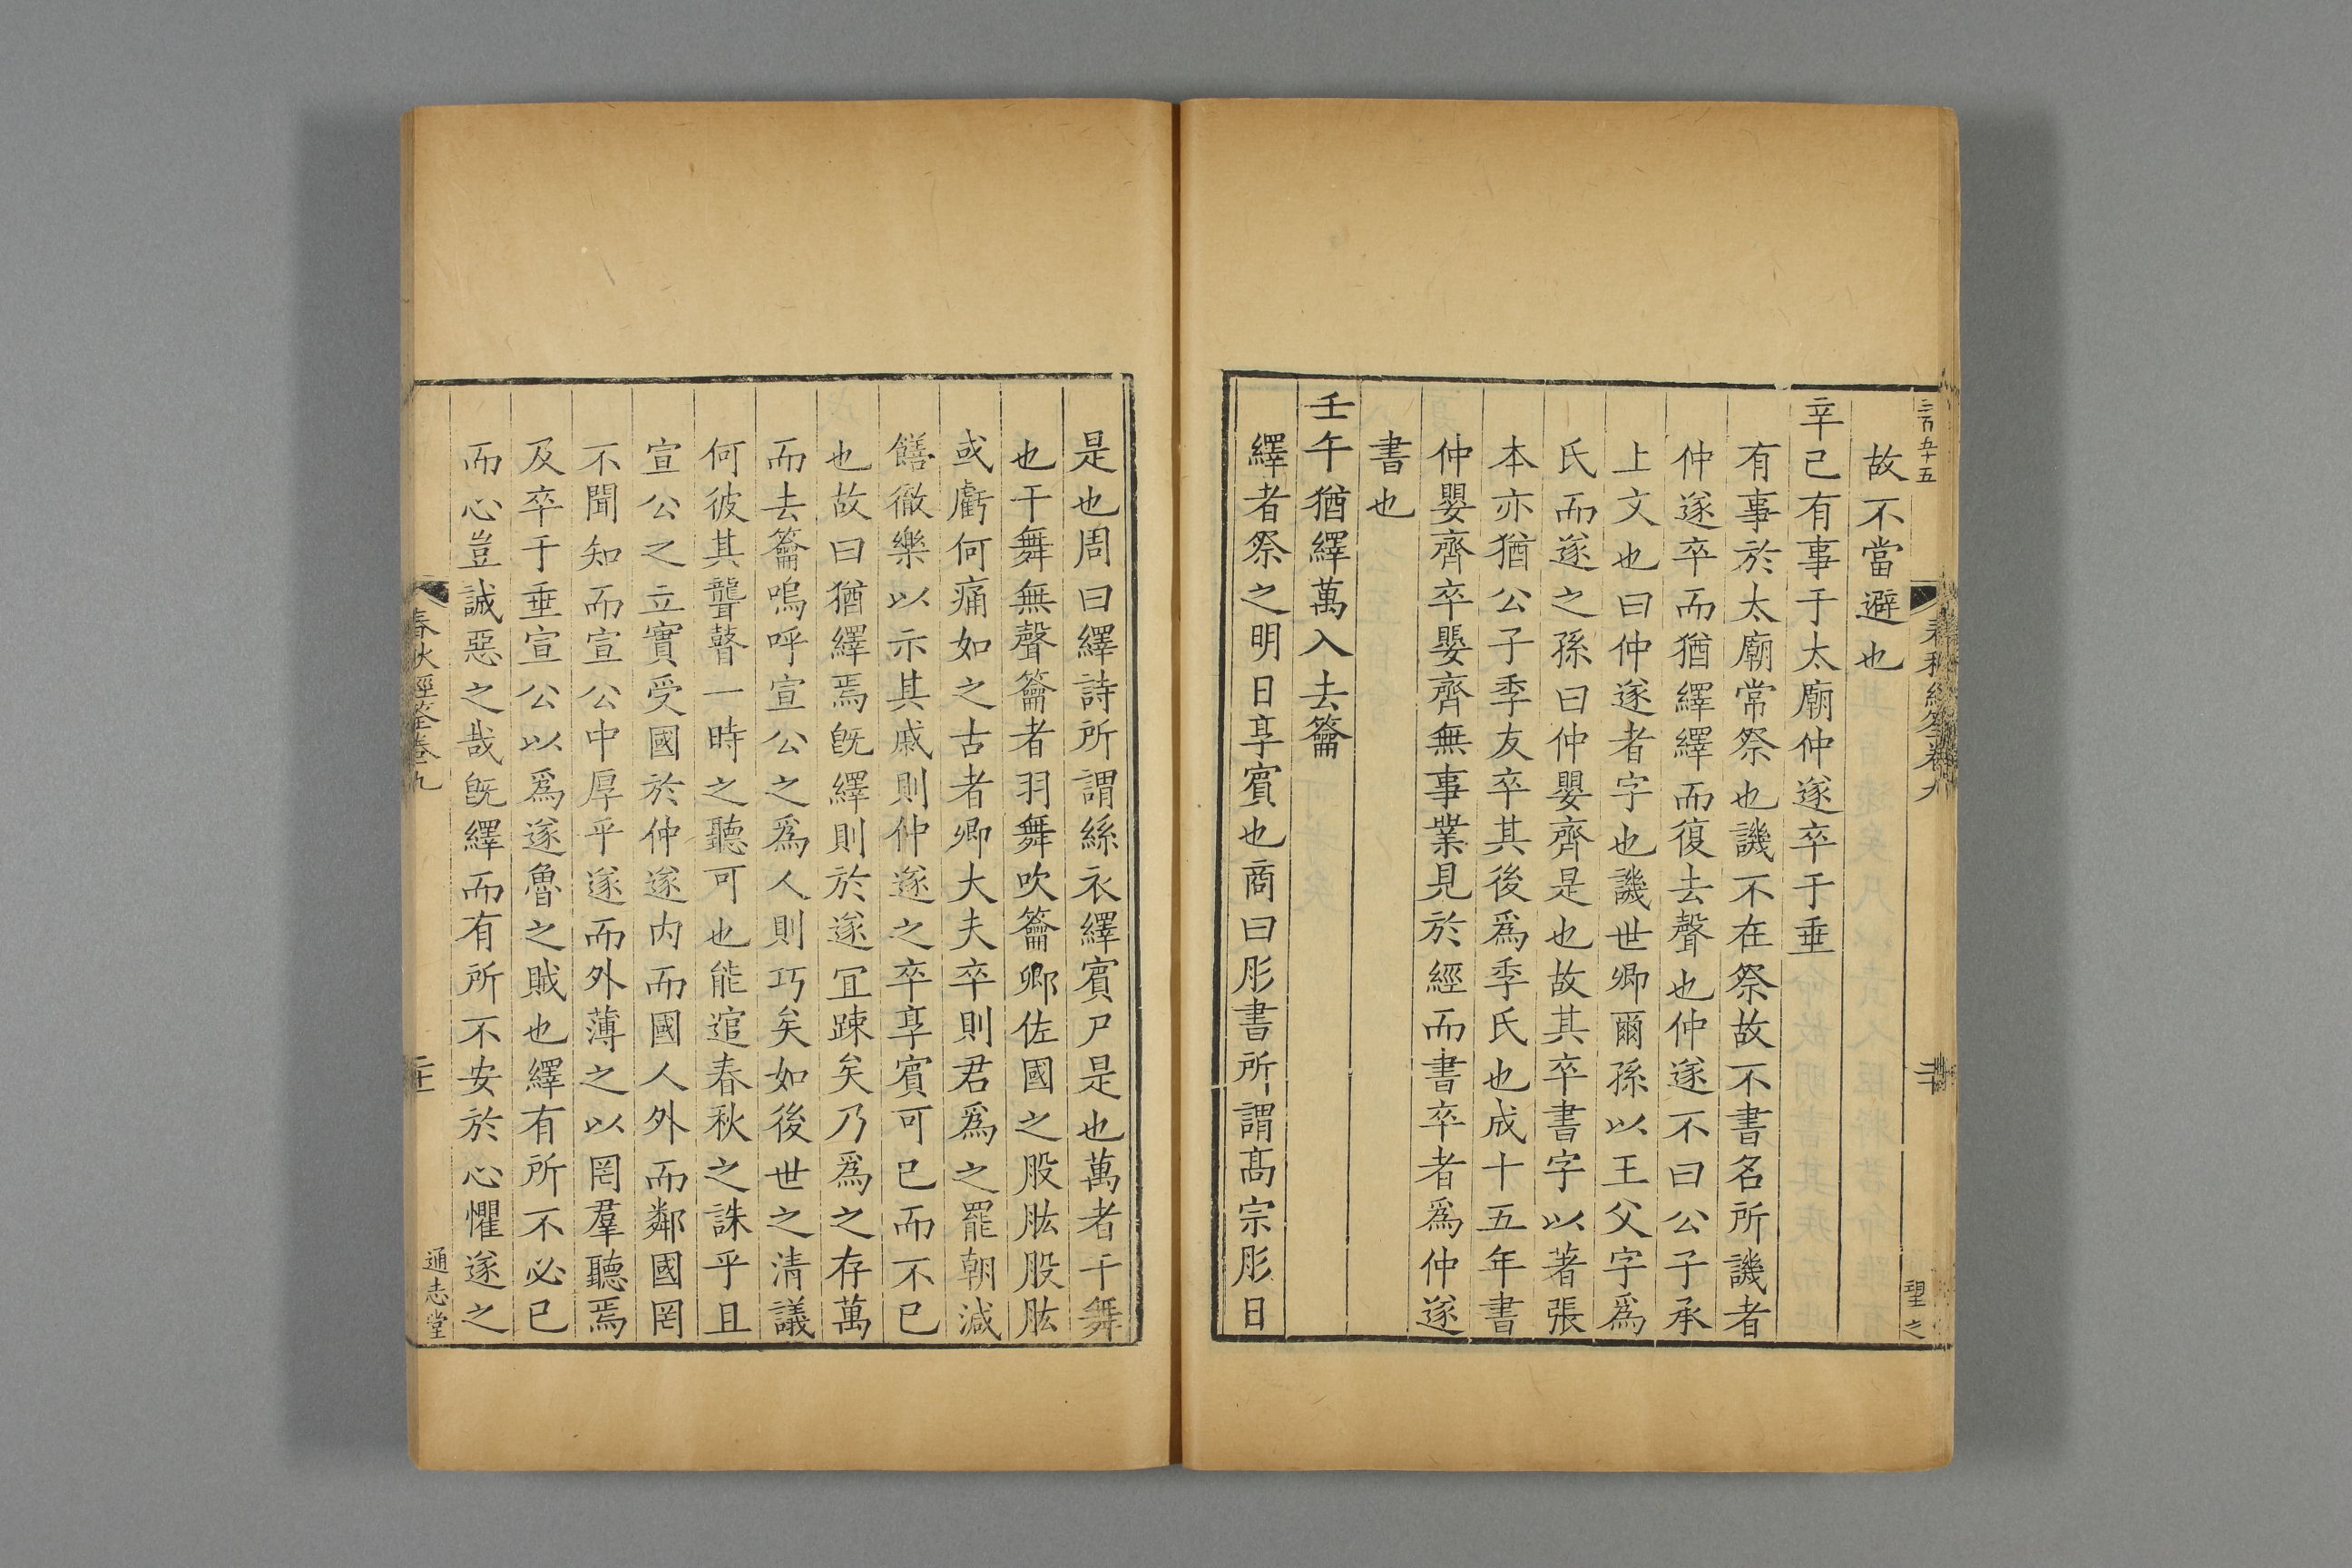 三百五十五
春秋經筌卷九
二十
望之
故不當避也
辛已有事于太廟仲遂卒于垂
有事於太廟常祭也譏不在祭故不書名所譏者
仲遂卒而猶繹繹而復去聲也仲遂不曰公子承
上文也曰仲遂者字也譏世卿爾孫以王父字爲
氏而遂之孫曰仲嬰齊是也故其卒書字以著張
本亦猶公子季友卒其後爲季氏也成十五年書
仲嬰齊卒嬰齊無事業見於經而書卒者爲仲遂
書也
壬午猶繹萬入去籥
繹者祭之明日享賓也商曰肜書所謂髙宗肜日
是也周曰繹詩所謂絲衣繹賓尸是也萬者干舞
也干舞無聲籥者羽舞吹籥卿佐國之股肱股肱
或虧何痛如之古者卿大夫卒則君爲之罷朝減
饍徹樂以示其戚則仲遂之卒享賓可已而不已
也故曰猶繹焉旣繹則於遂冝踈矣乃爲之存萬
而去籥嗚呼宣公之爲人則巧矣如後世之清議
何彼其聾瞽一時之聽可也能逭春秋之誅乎且
宣公之立實受國於仲遂内而國人外而鄰國罔
不聞知而宣公中厚乎遂而外薄之以罔羣聽焉
及卒于垂宣公以爲遂魯之賊也繹有所不必已
而心豈誠惡之哉旣繹而有所不安於心懼遂之
春秋經筌卷九
通志堂